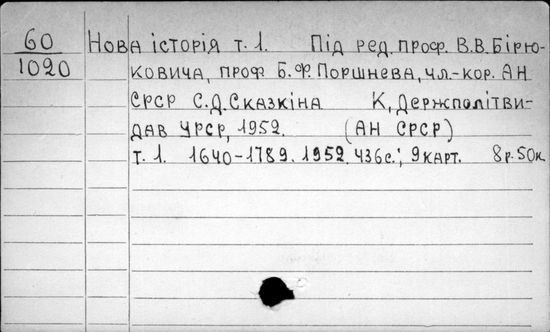 60 Нова історія т. 1. Під ред. проф. В.В. Бірю-
1020 ковича, проф Б.Ф. Поршнева, чл.-кор. АН
СРСР С.Д. Сказкіна К, Держполітви-
дав УРСР, 1952. (АН СРСР)
т. 1. 1640-1789. 1952. 436с.; 9 карт. 8р. 50к.